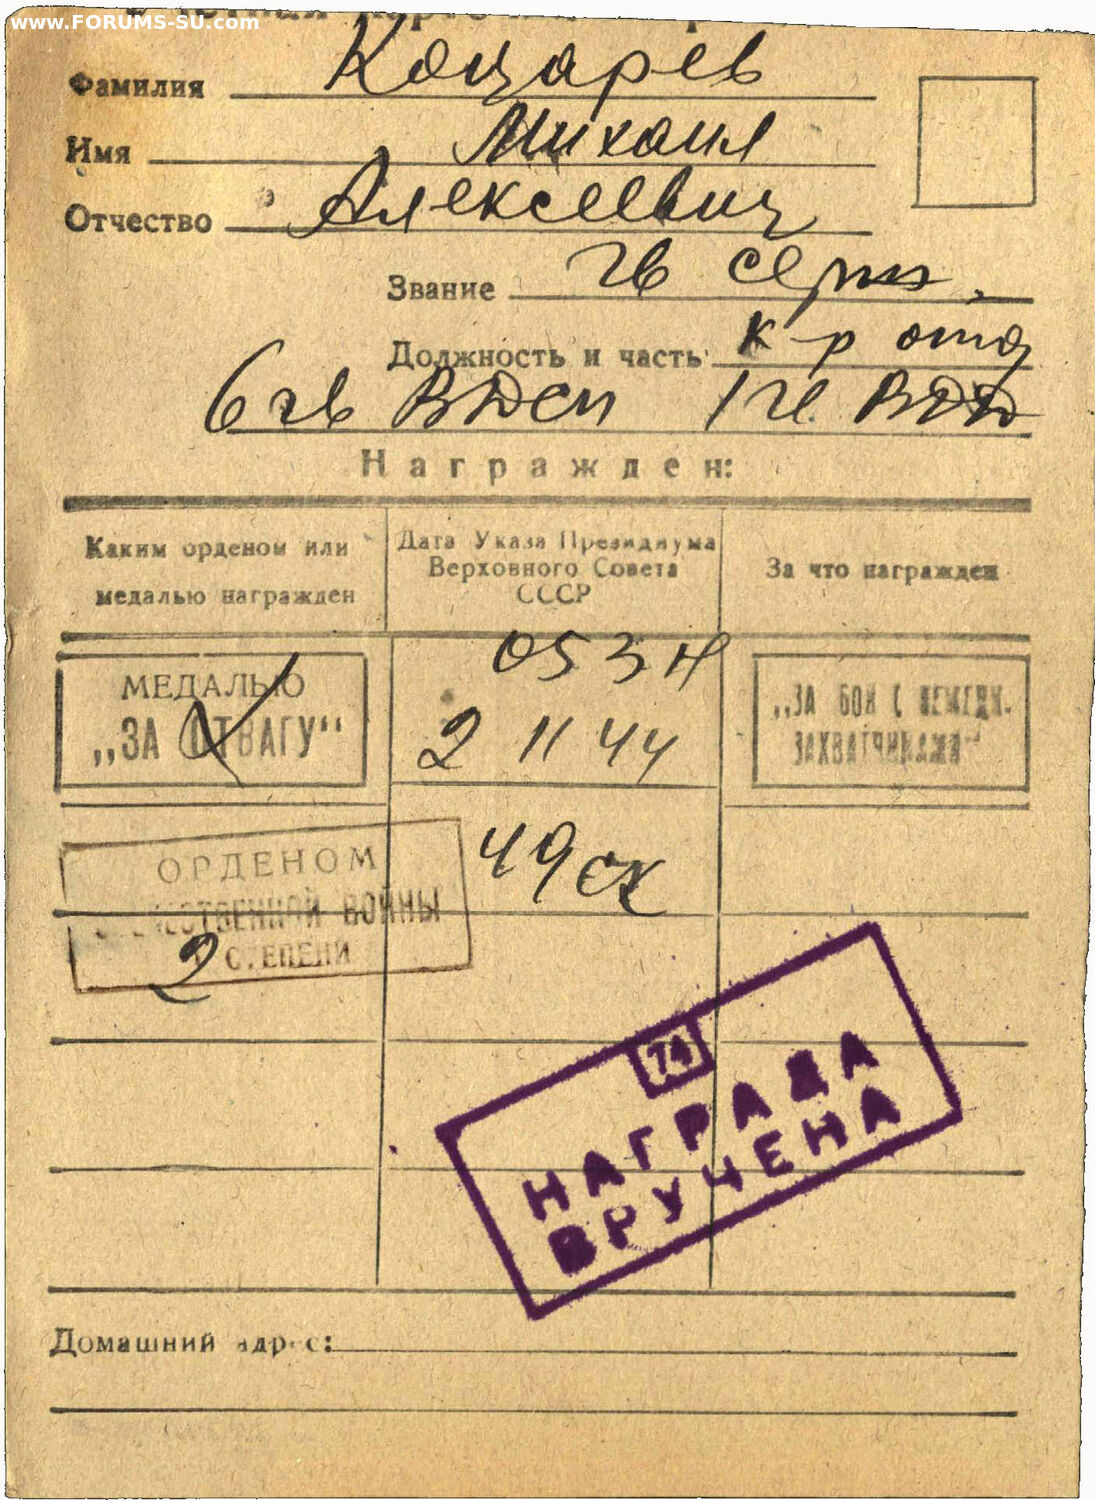 www.FORUMS-SU.com
Фамилия Коцарев
Имя Михаил
Отчество Алексеевич
Звание гв серж.
Должность и часть к-р отд
6 гв ВДСП 1 гв ВДД
Награжден:
Каким орденом или медалью награжден
Дата Указа Президиума Верховного Совета СССР
За что награжден
МЕДАЛЬЮ
„ЗА ОТВАГУ“
053 н
2 11 44
„ЗА БОИ С НЕМЕЦК.
ЗАХВАТЧИКАМИ“
ОРДЕНОМ
ОТЕЧЕСТВЕННОЙ ВОЙНЫ
2 СТЕПЕНИ
49 ск
74
НАГРАДА
ВРУЧЕНА
Домашний адрес: